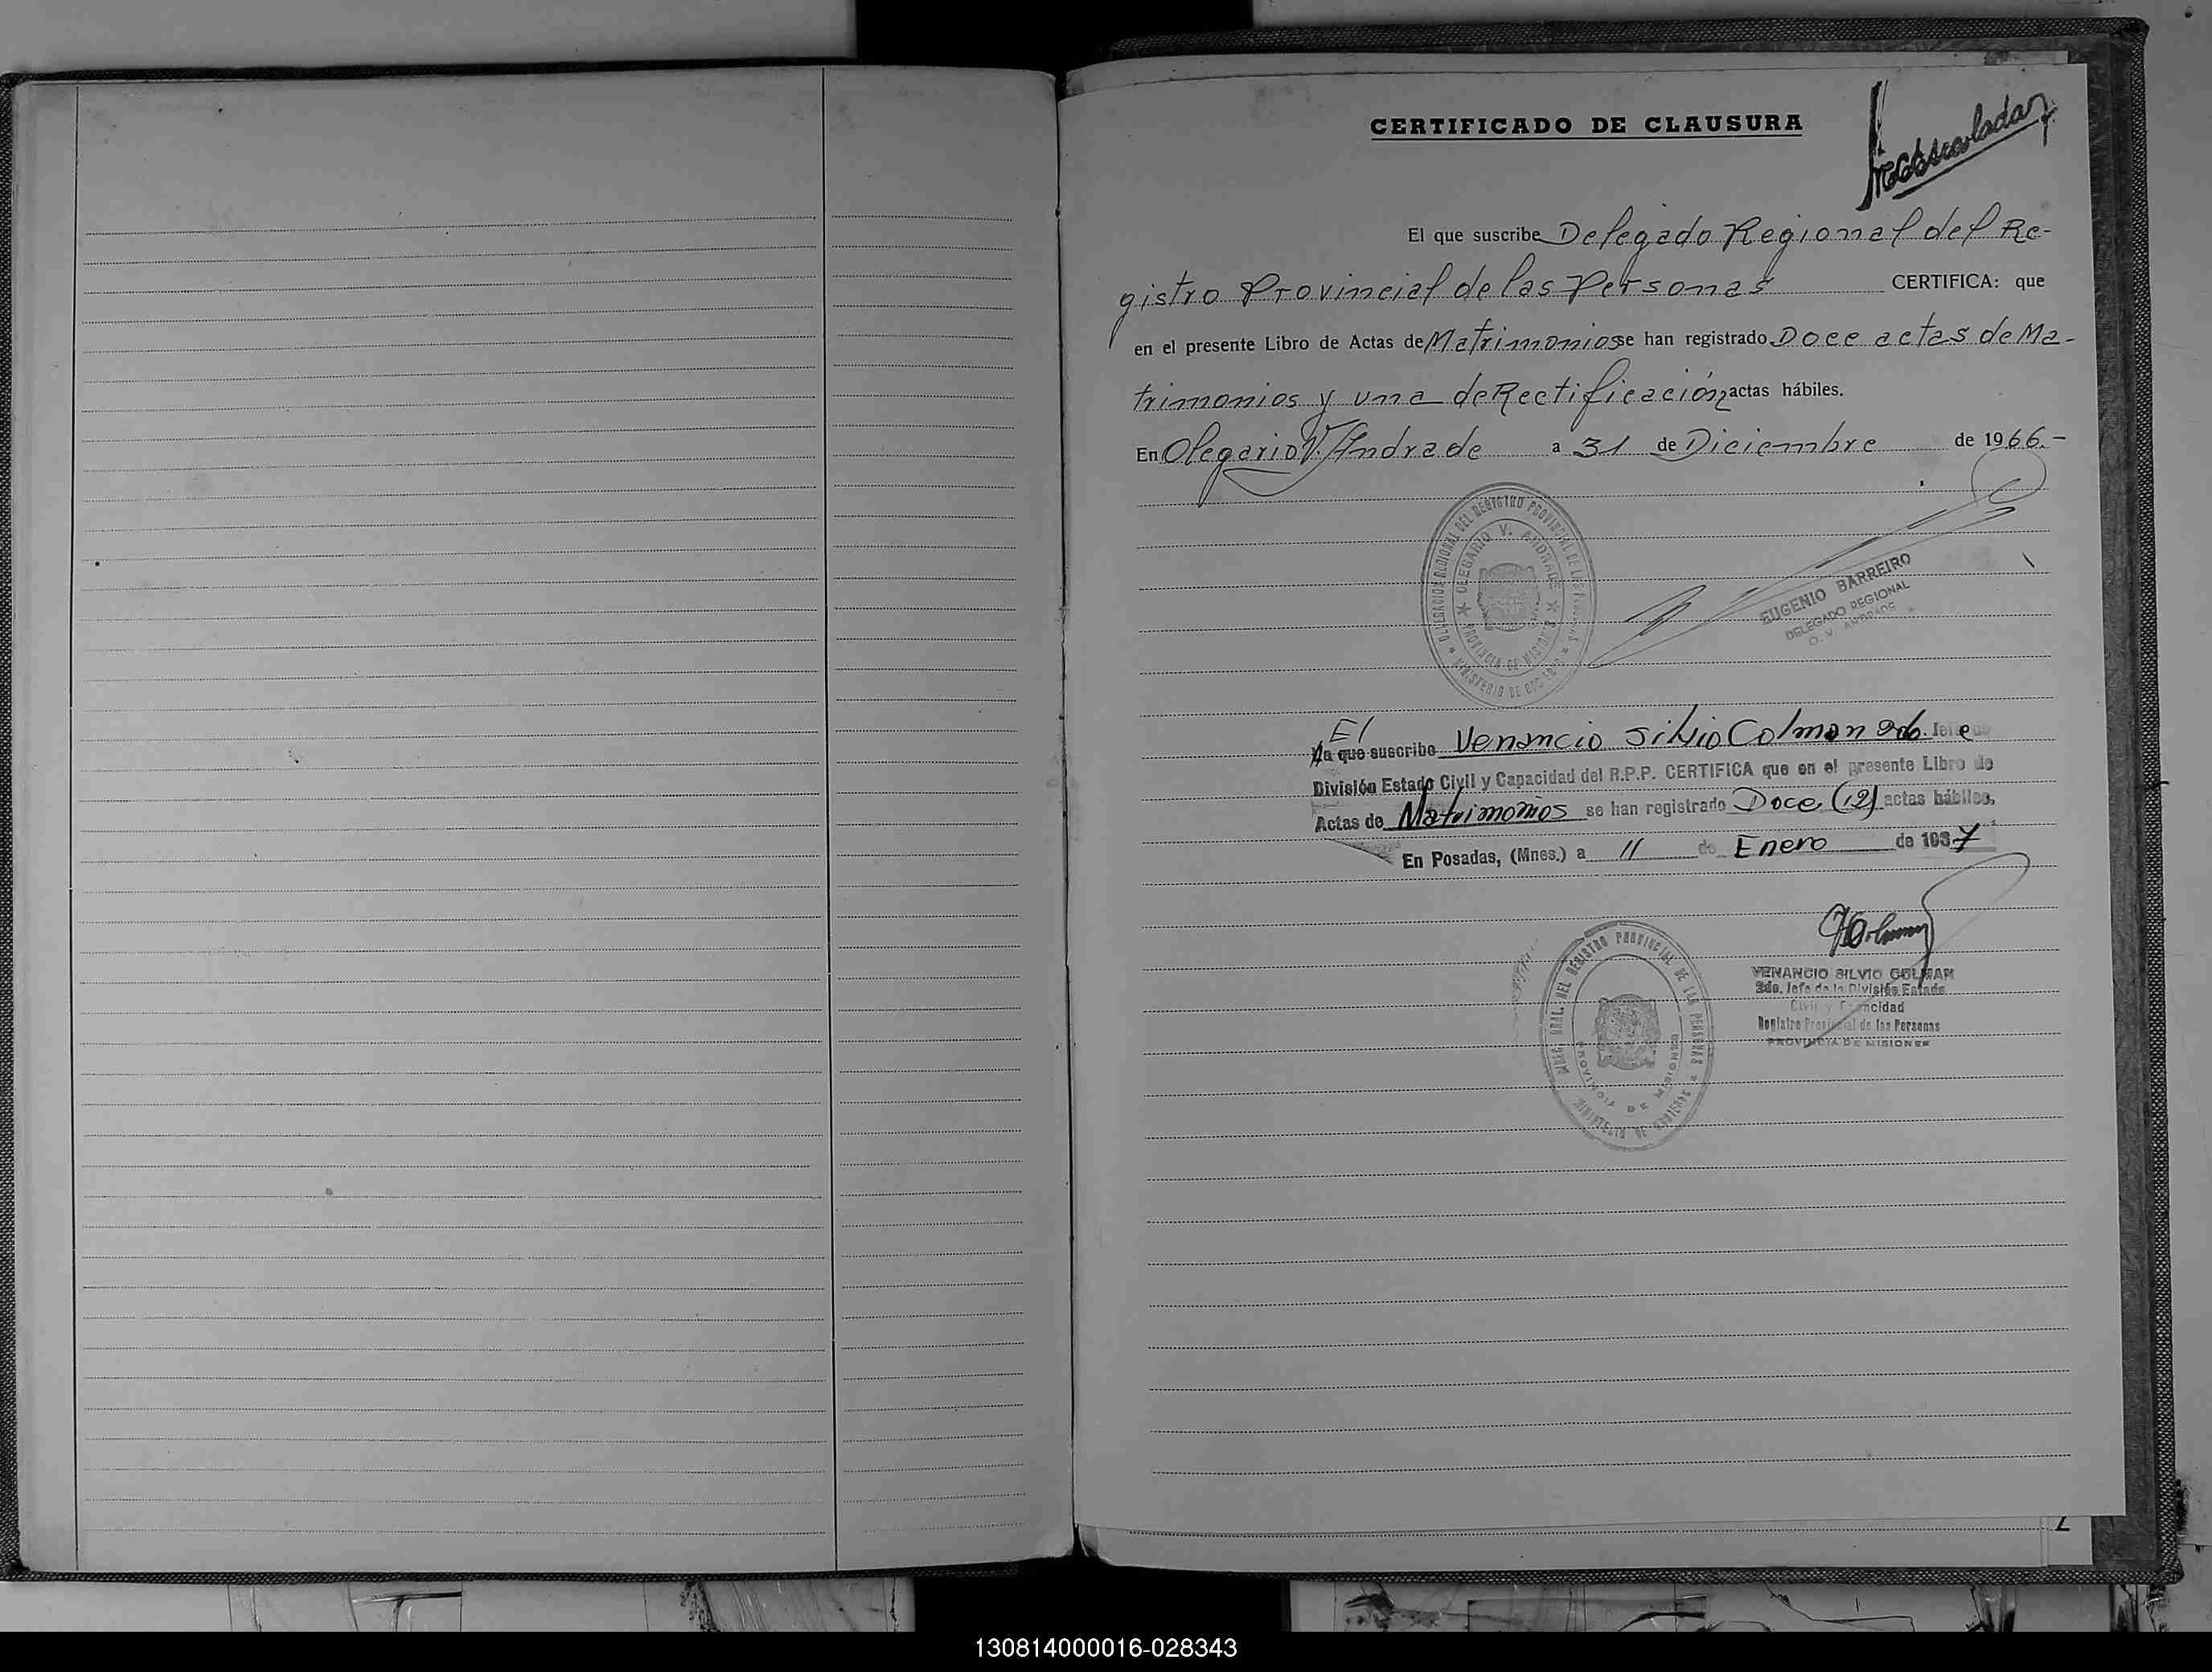 CERTIFICADO DE CLAUSURA
El que suscribe Delegado Regional del Re-
gistro Provincial de las Personas CERTIFICA: que
en el presente Libro de Actas de Matrimonios se han registrado Doce actas de Ma-
trimonios y una de Rectificación actas hábiles.
En Olegario V. Andrade a 31 de Diciembre de 1966.-
DELEGACION REGIONAL DEL REGISTRO PROVINCIAL DE LAS PERSONAS
OLEGARIO V. ANDRADE
PROVINCIA DE MISIONES
MINISTERIO DE GOBIERNO
EUGENIO BARREIRO
DELEGADO REGIONAL
O. V. ANDRADE
El
La que suscribe Venancio Silvio Colman 2do. Jefe
División Estado Civil y Capacidad del R.P.P. CERTIFICA que en el presente Libro de
Actas de Matrimonios se han registrado Doce (12) actas hábiles.
En Posadas, (Mnes.) a 11 de Enero de 1967
DIREC. GRAL. DEL REGISTRO PROVINCIAL DE LAS PERSONAS
PROVINCIA DE MISIONES
MINISTERIO DE GOBIERNO
VENANCIO SILVIO COLMAN
2do. Jefe de la División Estado
Civil y Capacidad
Registro Provincial de las Personas
PROVINCIA DE MISIONES
130814000016-028343